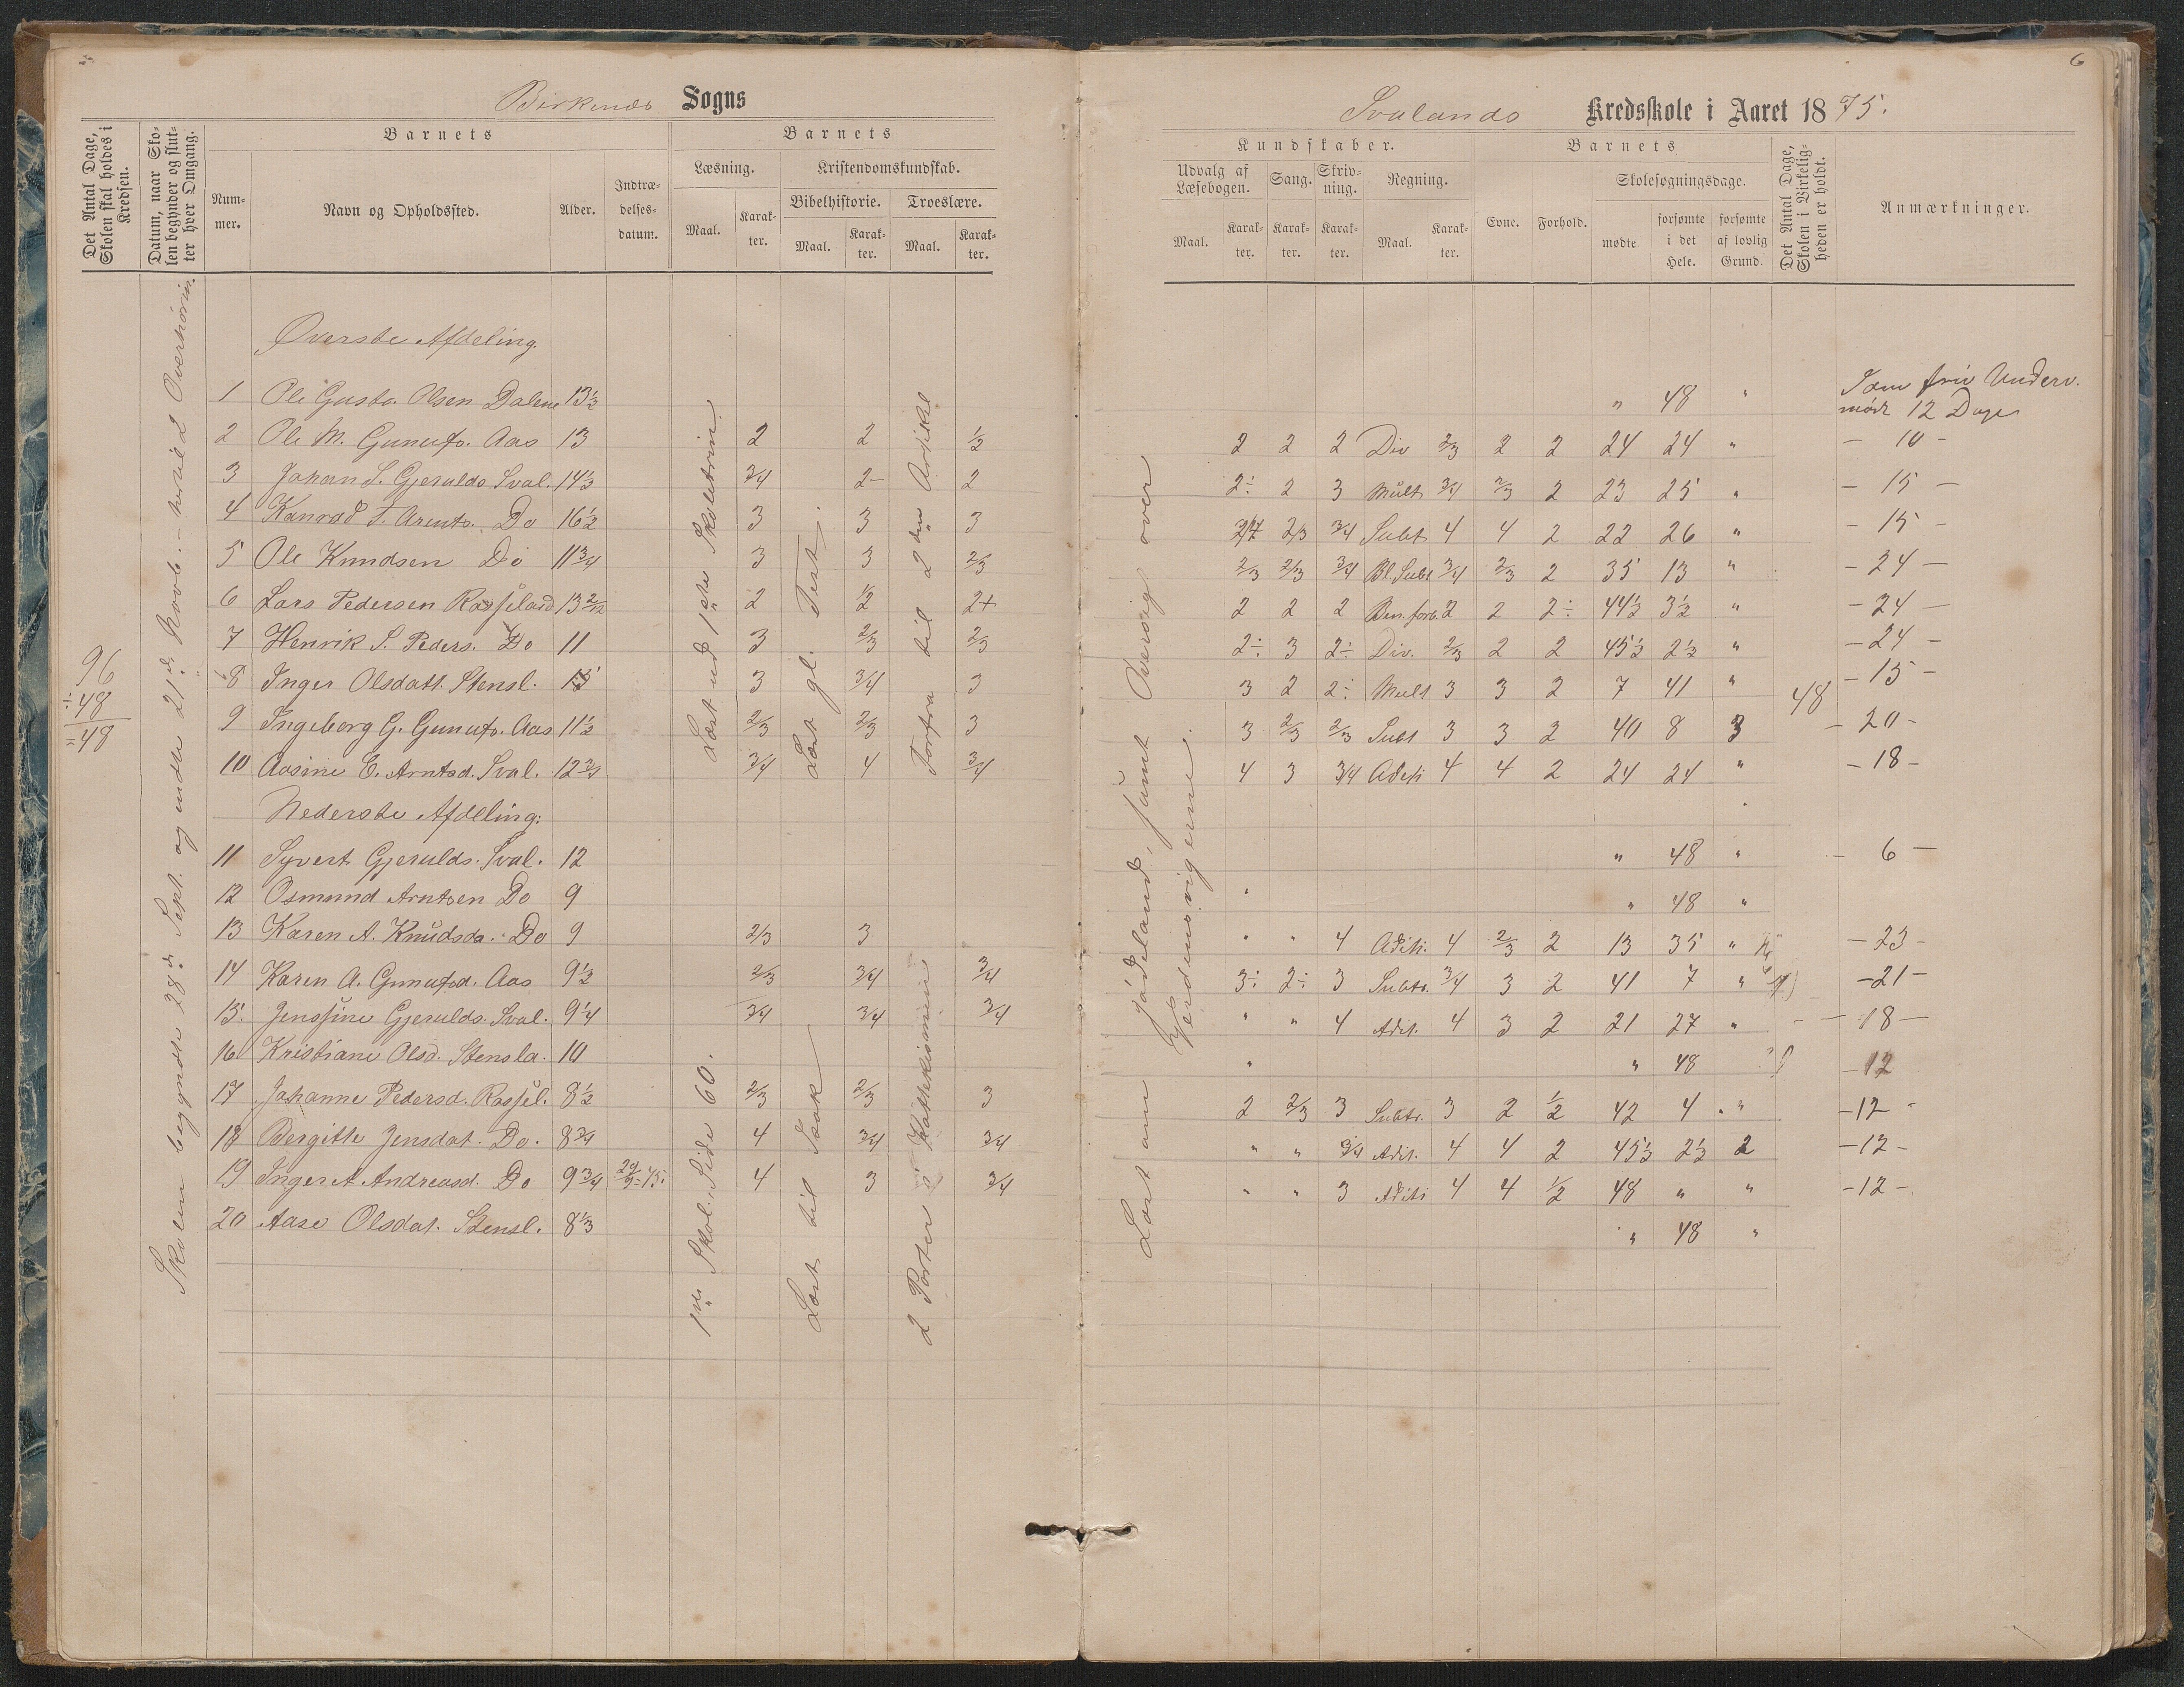 6
Birkenæs Sogns
Svalands Kredsskole i Aaret 1875.
Det Antal Dage, Skolen skal holdes i Kredsen.
Datum, naar Skolen begynder og slutter hver Omgang.
Barnets
Nummer.
Navn og Opholdssted.
Alder.
Indtrædelsesdatum.
Barnets
Læsning.
Maal.
Karakter.
Kristendomskundskab.
Bibelhistorie.
Maal.
Karakter.
Troeslære.
Maal.
Karakter.
Kundskaber.
Udvalg af Læsebogen.
Maal.
Karakter.
Sang.
Karakter.
Skrivning.
Karakter.
Regning.
Maal.
Karakter.
Barnets
Evne.
Forhold.
Skolesøgningsdage.
mødte
forsømte i det Hele.
forsømte af lovlig Grund.
Det Antal Dage, Skolen i Virkeligheden er holdt.
Anmærkninger.
96
÷48
=48
Skolen begyndte 28de Sept. og endte 21de Novb.
Øverste Afdeling.
1 Ole Gustv. Olsen Dalene 13½ " 48 " Som friv Underv. mødt 12 Dage
2 Ole M. Gunufs. Aas 13 2 2 ½ 2 2 2 Div 2/3 2 2 24 24 " – 10 –
3 Johan S. Gjerulds. Sval. 14½ 3/4 2– 2 2÷ 2 3 Mult 3/4 2/3 2 23 25 " – 15 –
4 Konrad T. Arents. Do 16½ 3 3 3 2/3 3/4 Subt 4 4 2 22 26 " – 15 –
5 Ole Knudsen Do 11 3/4 3 3 2/3 2/3 2/3 3/4 Bl. Subt 3/4 2/3 2 35 13 " – 24 –
6 Lars Pedersen Rosseland 13 2/12 2 ½ 2+ 2 2 2 Ben. forb. 2 2 2÷ 44½ 3½ " – 24 –
7 Henrik S. Peders. Do 11 3 2/3 2/3 2÷ 3 2÷ Div. 2/3 2 2 45½ 2½ " – 24 –
8 Inger Olsdatt. Stensl. 3 3/4 3 3 2 2÷ Mult 3 3 2 7 41 " 48 – 15 –
9 Ingeborg G. Gunufs. Aas 11½ 2/3 2/3 3 3 2/3 2/3 Subt 3 3 2 40 8 3 – 20 –
10 Aasine E. Arntsd. Sval. 12 3/4 3/4 4 3/4 4 3 3/4 Aditi 4 4 2 24 24 " – 18 –
Læst ud 1ste Skoletrin
Læst gl. Test.
Forfra til 2den Artikel
Nederste Afdeling:
11 Syvert Gjerulds. Sval. 12 " 48 " – 6 –
12 Osmund Arntsen Do 9 " " 48 "
13 Karen A. Knudsda. Do 9 2/3 3 " " 4 Aditi. 4 2/3 2 13 35 " – 23 –
14 Karen A. Gunufsd. Aas 9½ 2/3 3/4 3/4 3÷ 2÷ 3 Subtr. 3/4 3 2 41 7 " – 21 –
15. Jenssine Gjerulds. Sval. 9¼ 3/4 3/4 3/4 " " 4 Adit. 4 3 2 21 27 " – 18 –
16 Kristiane Olsd. Stensla. 10 " " 48 – 12
17 Johanne Pedersd. Rossel. 8½ 2/3 2/3 3 2 2/3 3 Subtr. 3 2 ½ 42 4 " – 12 –
18 Bergitte Jensdat. Do. 8 3/4 4 3/4 3/4 " " 3/4 Adit. 4 4 2 45½ 2½ 2 – 12 –
19 Inger A. Andreasd. Do 9 3/4 29/9-75. 4 3 3/4 " " 3 Aditi 4 4 ½ 48 " " – 12 –
20 Aase Olsdat. Stensl. 8⅓ " 48 "
1ste Skol. Side 60.
Læst til Isaak
2 Parter i Kathekismen
Læst om Jødeland, samt Oversigt over
Verdensrigerne.